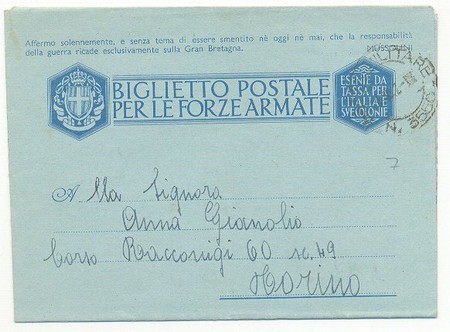 Affermo solennemente, e senza tema di essere smentito nè oggi nè mai, che la responsabilità
della guerra ricade esclusivamente sulla Gran Bretagna. MUSSOLINI
BIGLIETTO POSTALE
PER LE FORZE ARMATE
ESENTE DA
TASSA PER
L'ITALIA E
SUE COLONIE
MILITARE
N. 3550
7
A Alla Signora
Anna Gianolio
Corso Racconigi 60 sc. 49
Torino